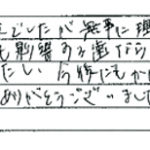 までしたが無事に理
も影響する歯だから
たい 今後にもか
ありがとうございました